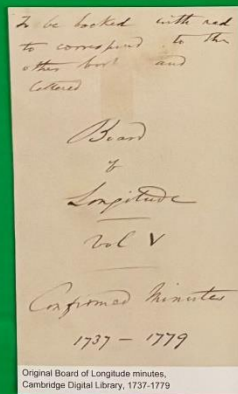 To be backed with red
to correspond to the
other vol^s and
lettered
Board
of
Longitude
Vol V
Confirmed Minutes
1737 – 1779
Original Board of Longitude minutes,
Cambridge Digital Library, 1737-1779